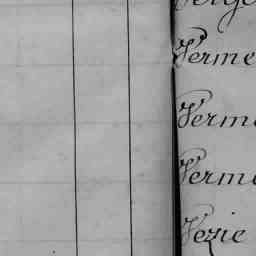 Verme
Verme
Verme
Vezie